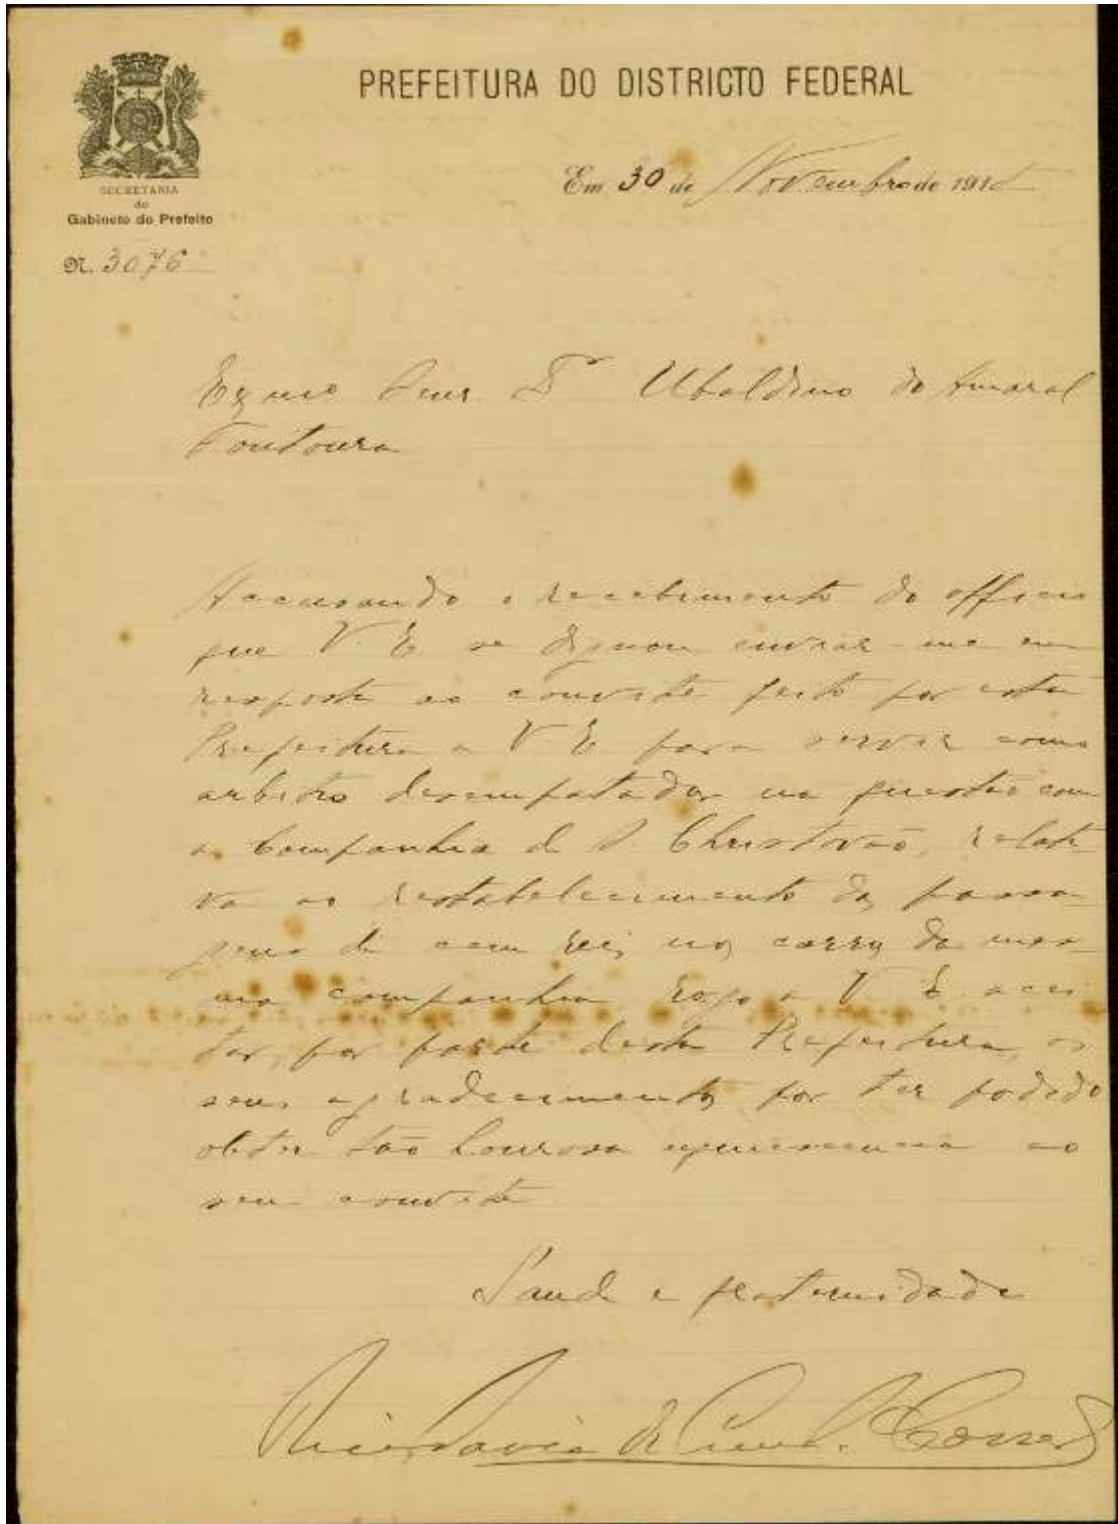 PREFEITURA DO DISTRICTO FEDERAL
Em 30 de Novembro de 191
SECRETARIA
do
Gabinete do Prefeito
N. 3076
Exmo Snr. Dr Ubaldino do Amaral
Fontoura
Accusando o recebimento do officio
que V. E se dignou enviar-me em
resposta ao convite feito por esta
Prefeitura a V. E para servir como
arbitro desempatador na questão com
a Companhia de S. Christovão, relati
va ao restabelecimento das passa
gens de cem reis nos carros da mes
ma companhia rogo a V. E acei
tar, por parte desta Prefeitura, os
seus agradecimentos por ter podido
obter tão honrosa acquiescencia ao
seu convite.
Saude e fraternidade
Rivadavia da Cunha Corrêa